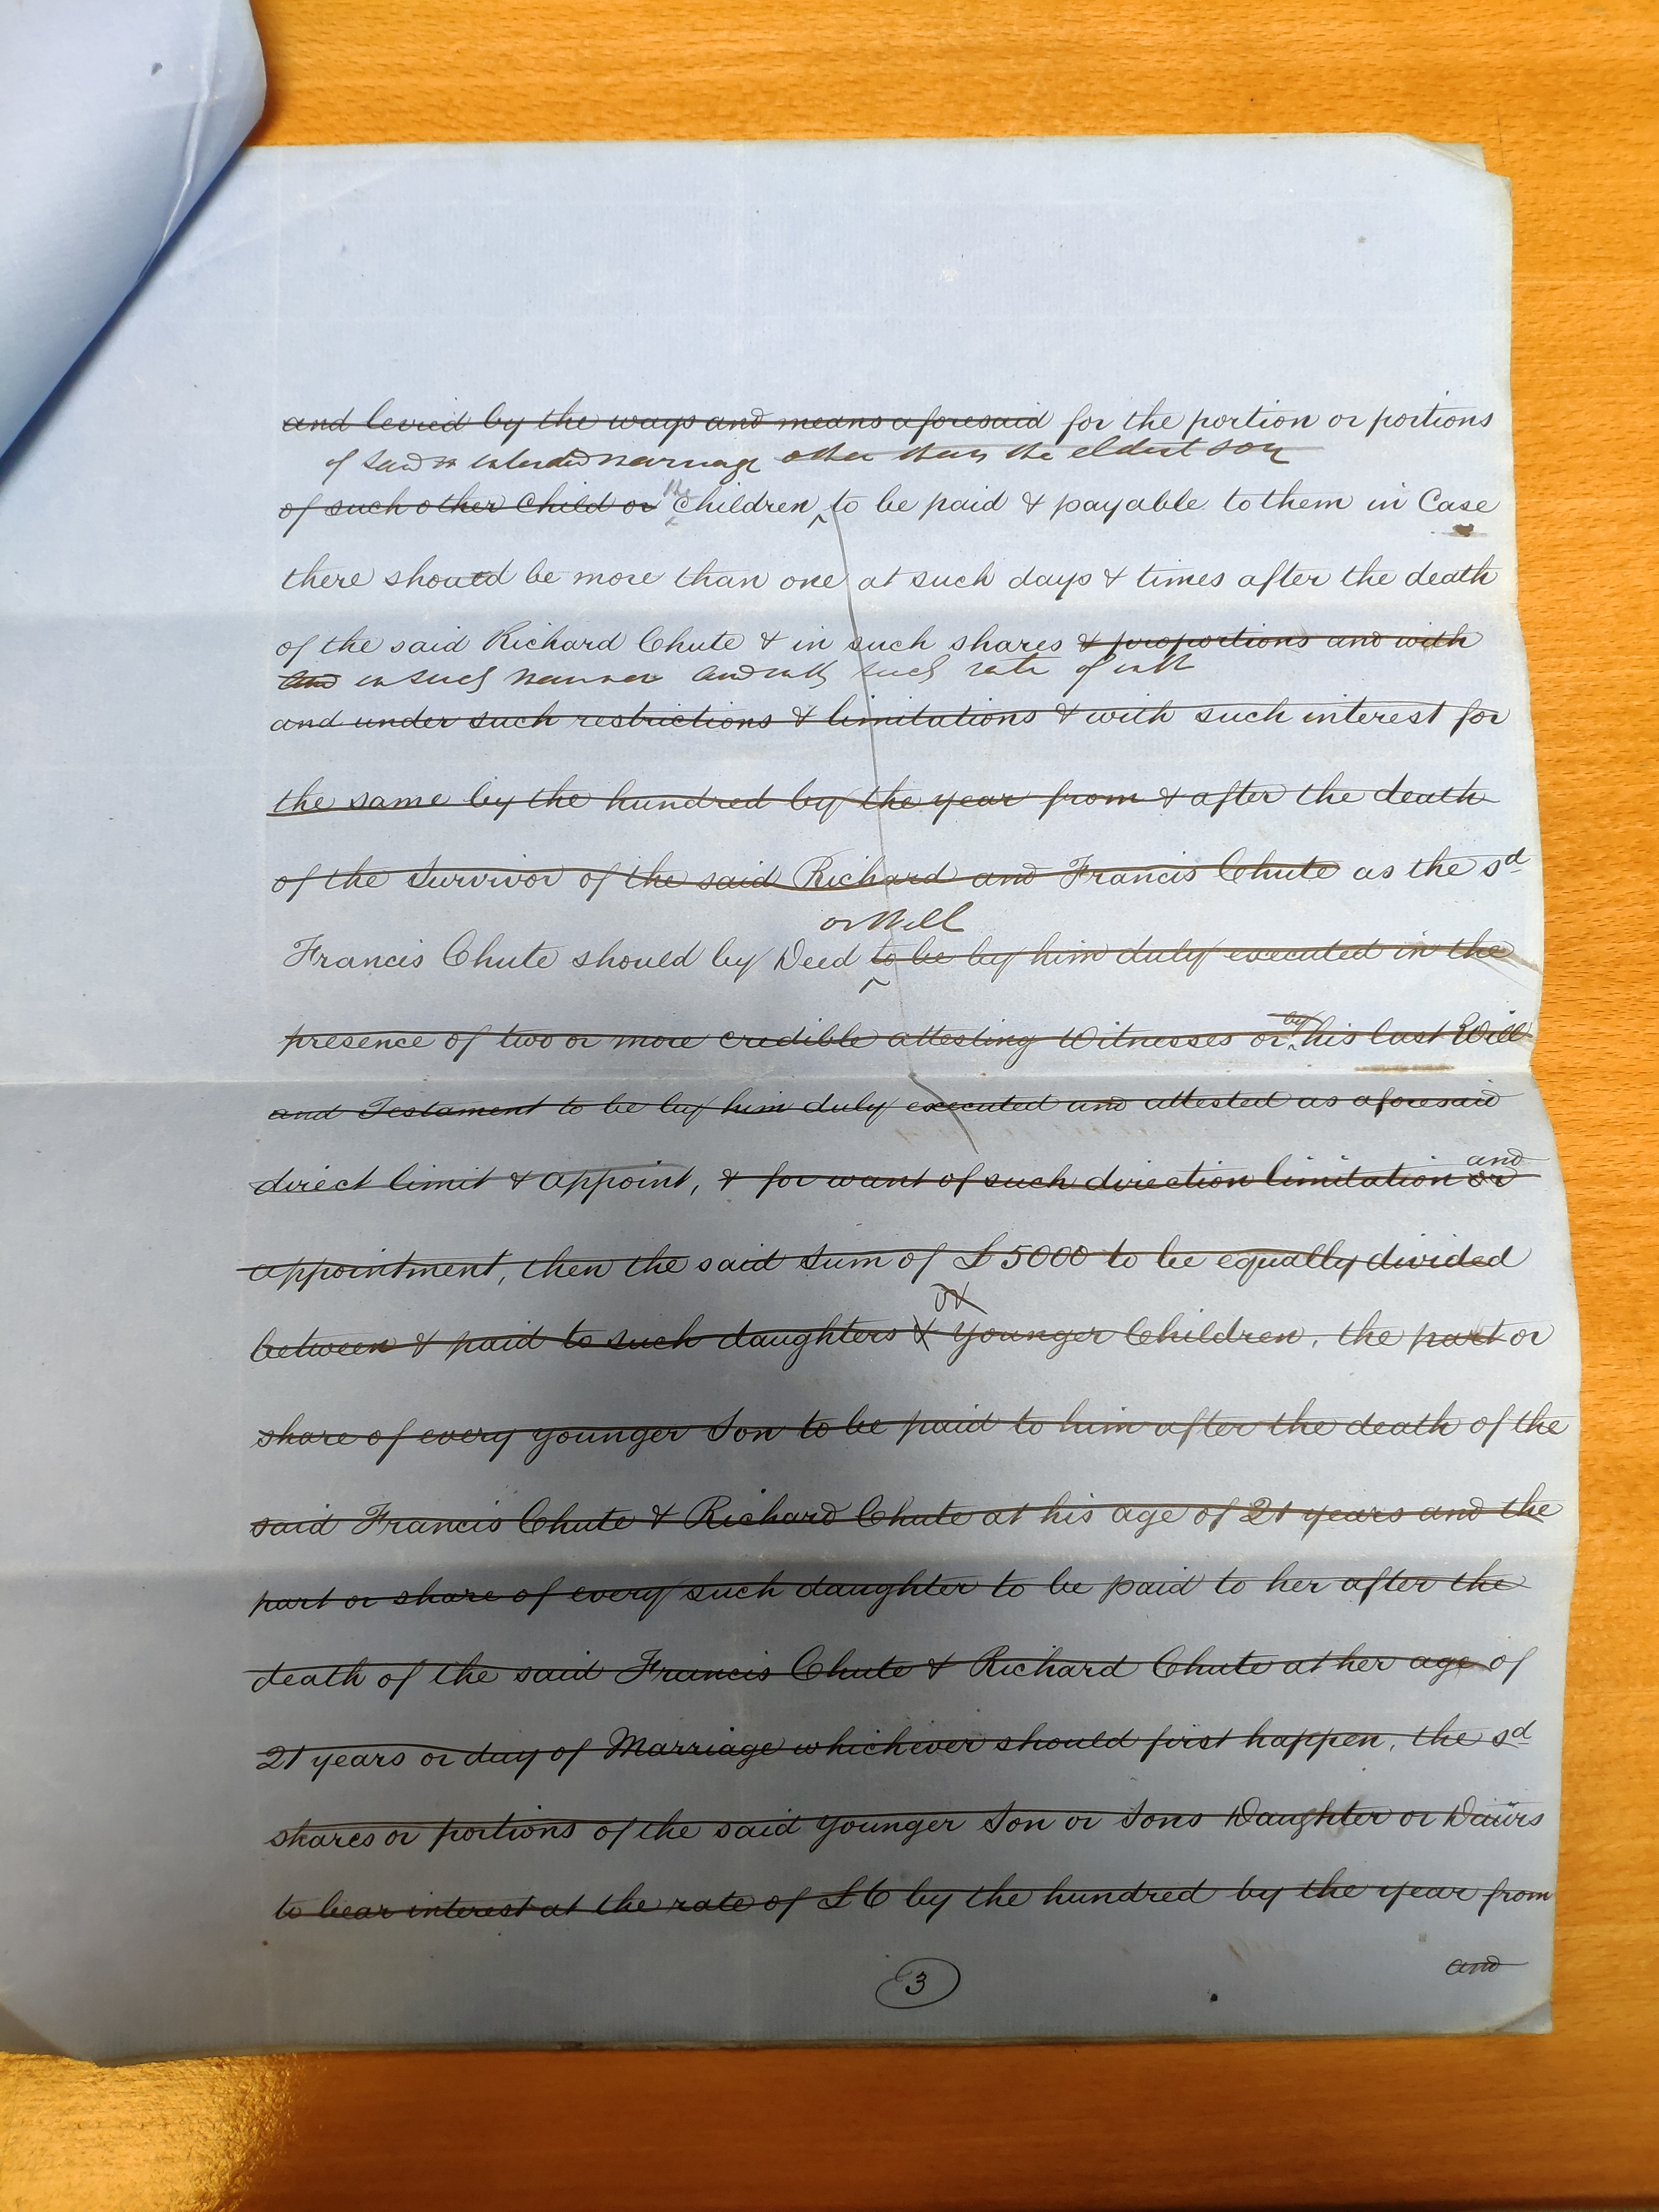 and levied by the ways and means aforesaid for the portion or portions
of said intended marriage other than the eldest son
of such other Child or the Children to be paid & payable to them in Case
there should be more than one at such days & times after the death
of the said Richard Chute & in such shares & proportions and with
and in such manner and with such rate of intt
and under such restrictions & limitations & with such interest for
the same by the hundred by the year from & after the death
of the Survivor of the said Richard and Francis Chute as the sd
or Will
Francis Chute should by Deed to be by him duly executed in the
presence of two or more credible attesting Witnesses or by his last Will
and Testament to be by him duly executed and attested as aforesaid
and
direct limit & appoint, & for want of such direction limitation or
appointment, then the said Sum of £5000 to be equally divided
or
between & paid to such daughters & younger Children, the part or
share of every younger Son to be paid to him after the death of the
said Francis Chute & Richard Chute at his age of 21 years and the
part or share of every such daughter to be paid to her after the
death of the said Francis Chute & Richard Chute at her age of
21 years or day of Marriage whichever should first happen, the sd
shares or portions of the said younger Son or Sons Daughter or Daürs
to bear interest at the rate of £6 by the hundred by the year from
and
3